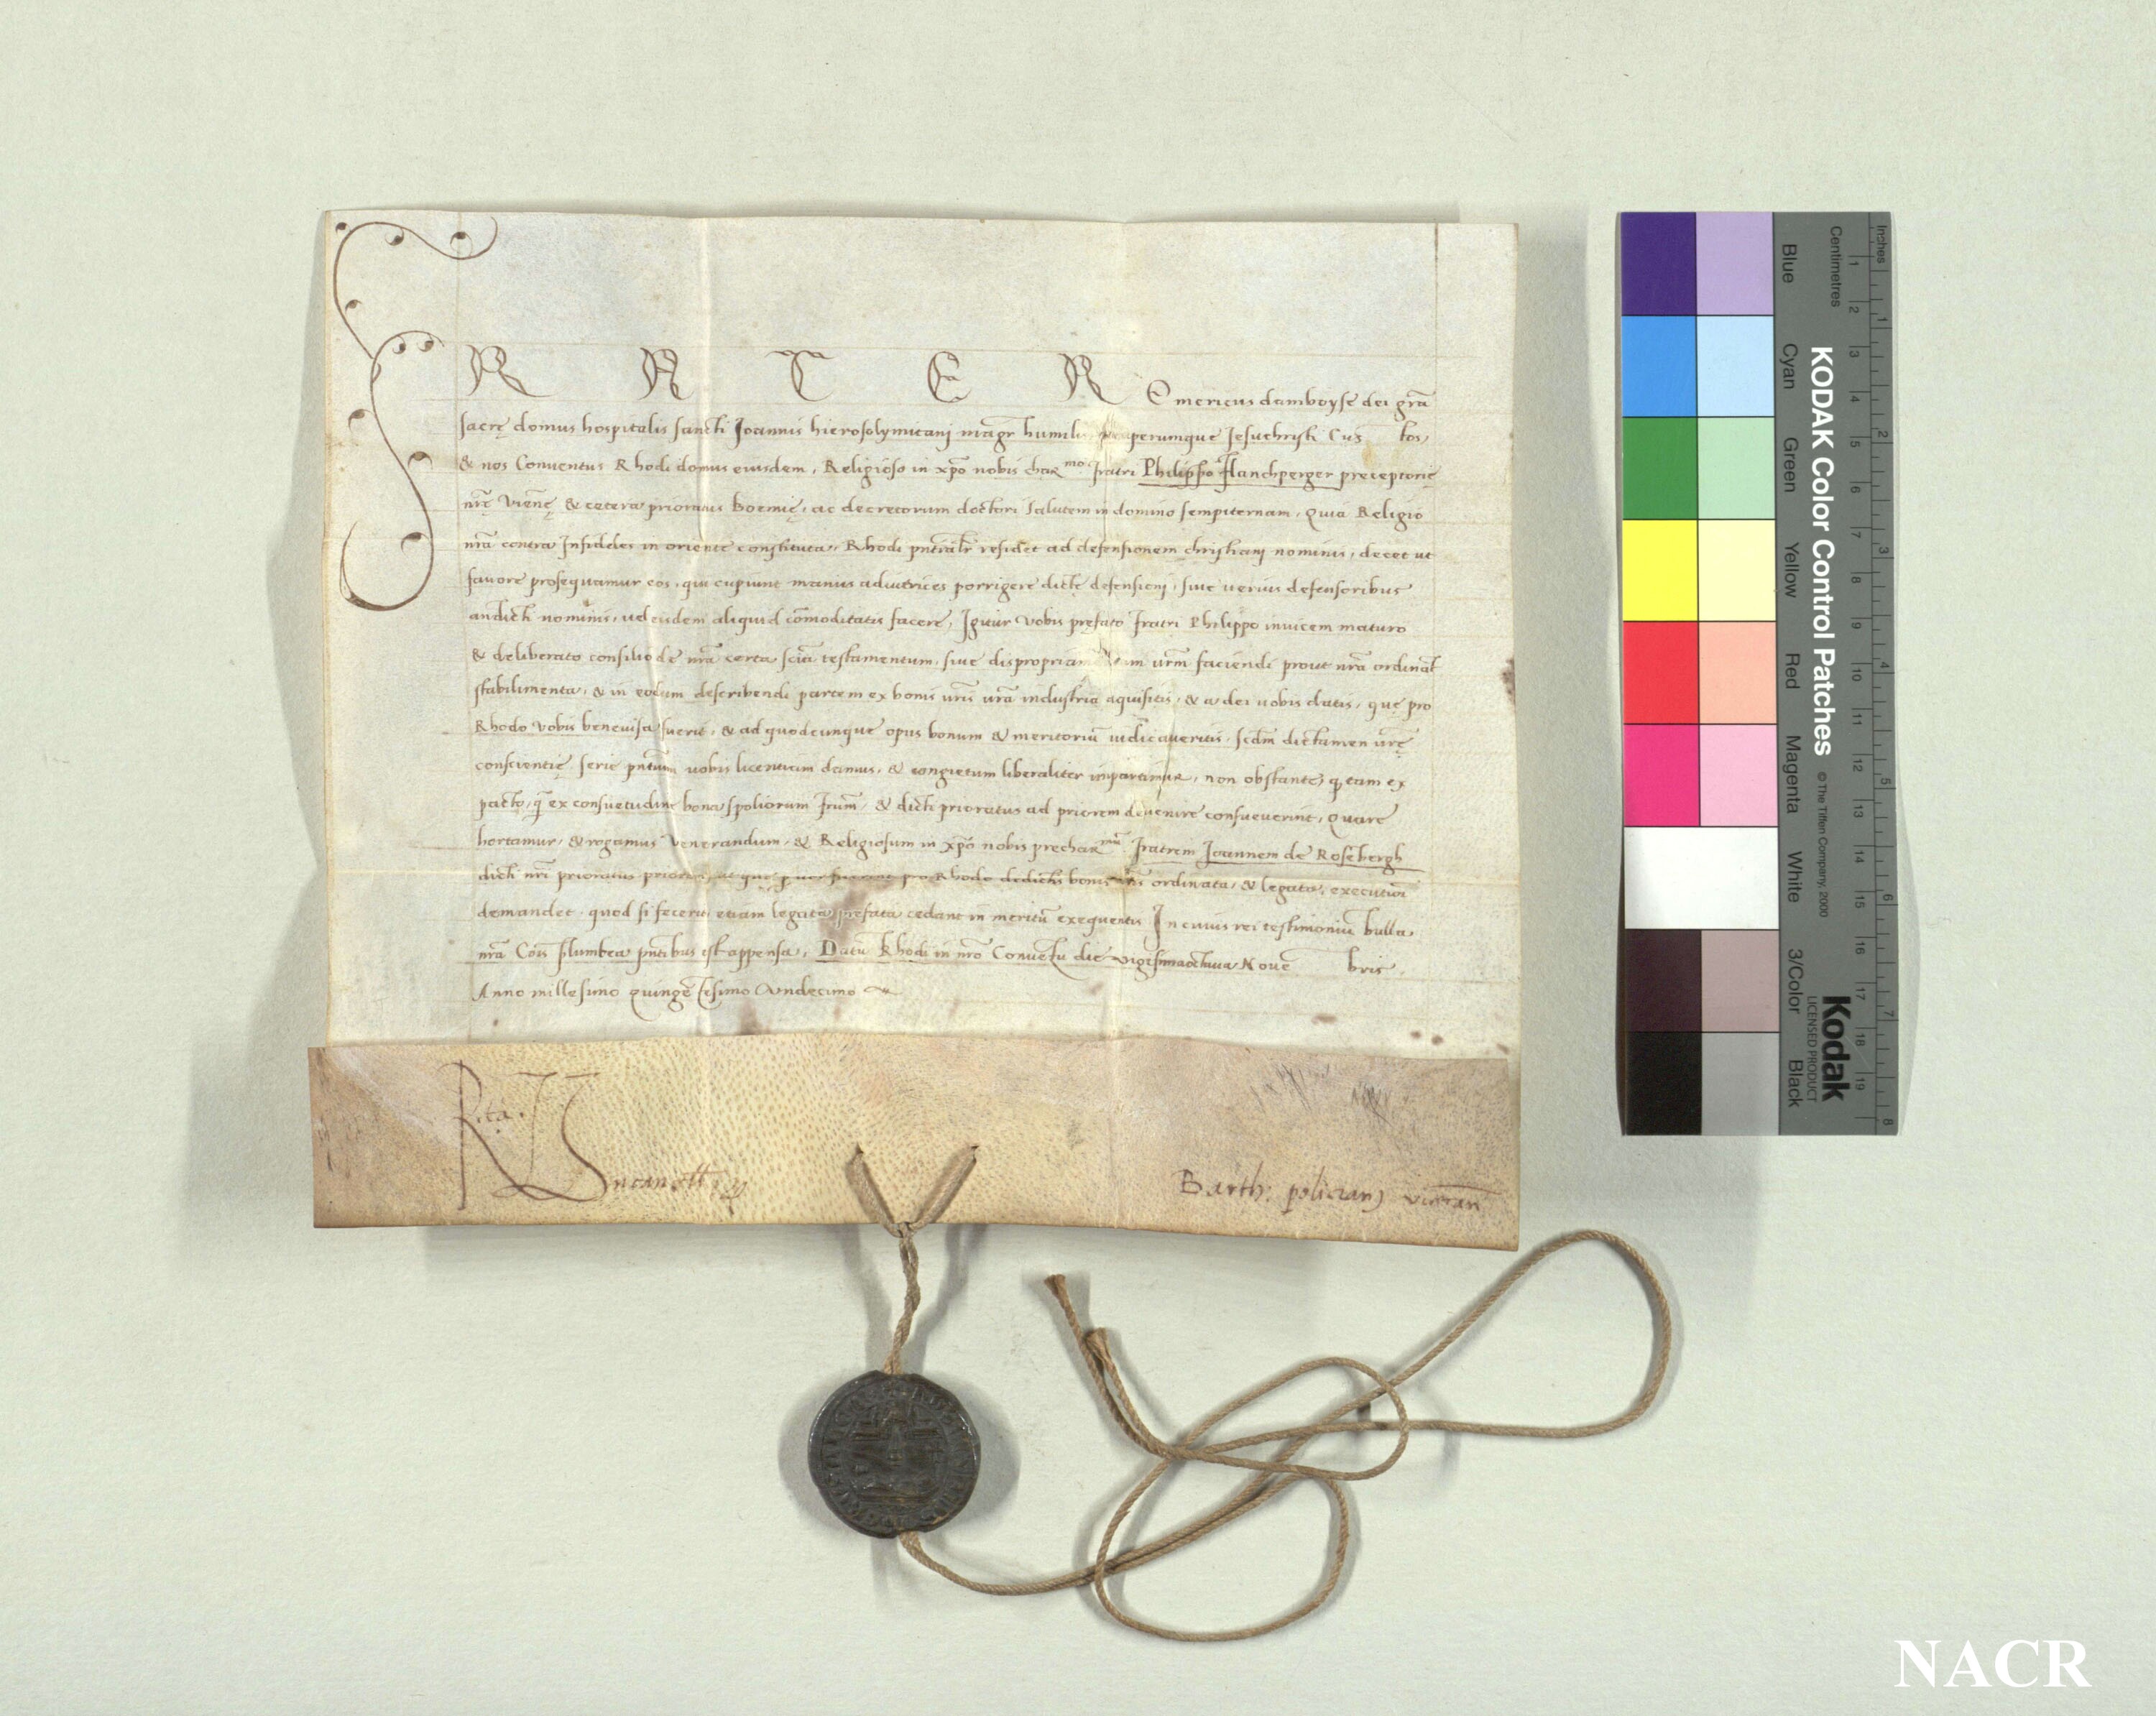 FRATER Emericus damboyse dei gr̄a
sacrę domus hospitalis sancti Joannis hierosolymitanj mag̃r humilis pauperumque Jesuchristi Cus tos,
& nos Conventus Rhodi domus eiusdem, Religioso in xp̃o nobis char^mo fratri Philippo Flanchperger preceptorie
nr̃ę Vieñę & cetera prioratus boemię, ac decretorum doctori Salutem in domino sempiternam, Quia Religio
nr̃a contra Infideles in oriente constituta, Rhodi pñtialr̃ residet ad defensionem christianj nominis, decet ut
favore prosequamur eos, qui cupiunt manus adiutrices porrigere dictę defensionj, sive verius defensoribus
nominis, vel eisdem aliquid cõmoditatis facere, Igitur vobis prefato fratri Philippo invicem maturo
& deliberato consilio de nr̃a certa sciã testamentum, sive vr̃m faciendi prout nr̃a ordinãt
stabilimenta, & in eodum describendi partem ex bonis vr̃is vr̃a industria aquisitis, & a dei vobis datis, quę pro
Rhodo vobis benevisa fuerit, & ad quodcunque opus bonum & meritoriũ iudicaveritis, scdm̃ dictamen vr̃ę
conscientię serie pñtium vobis licentiam damus, & liberaliter impartimur, non obstante, q̃ tam ex
pacto, q̃ ex consuetudine bona spoliorum fr̃um, & dicti prioratus ad priorem devenire consueverint, Quare
hortamur, & rogamus Venerandum, & Religiosum in xp̃o nobis prechar^mũ fratrem Joannem de Rosebergh
dicti nr̃i prioratus priorem, ut quę p vos fuerint pro Rhodo de dictis bonis vr̃is ordinata, & legata, executioi
demandet, quod si fecerit, etiam legata prefata cedant in meritũ exequentis In cuius rei testimoniũ bulla
nr̃a Cõis plumbea pñtibus est appensa, Datũ Rhodi in nr̃o Convetu die vigesimaoctava Novẽ bris,
Anno millesimo Quingẽtesimo Undecimo
R.ta
Barth: policianj
KODAK Color Control Patches
© The Tiffen Company, 2000
Kodak
LICENSED PRODUCT
Inches 1 2 3 4 5 6 7 8
Centimetres 1 2 3 4 5 6 7 8 9 10 11 12 13 14 15 16 17 18 19
Blue
Cyan
Green
Yellow
Red
Magenta
White
3/Color
Black
NACR